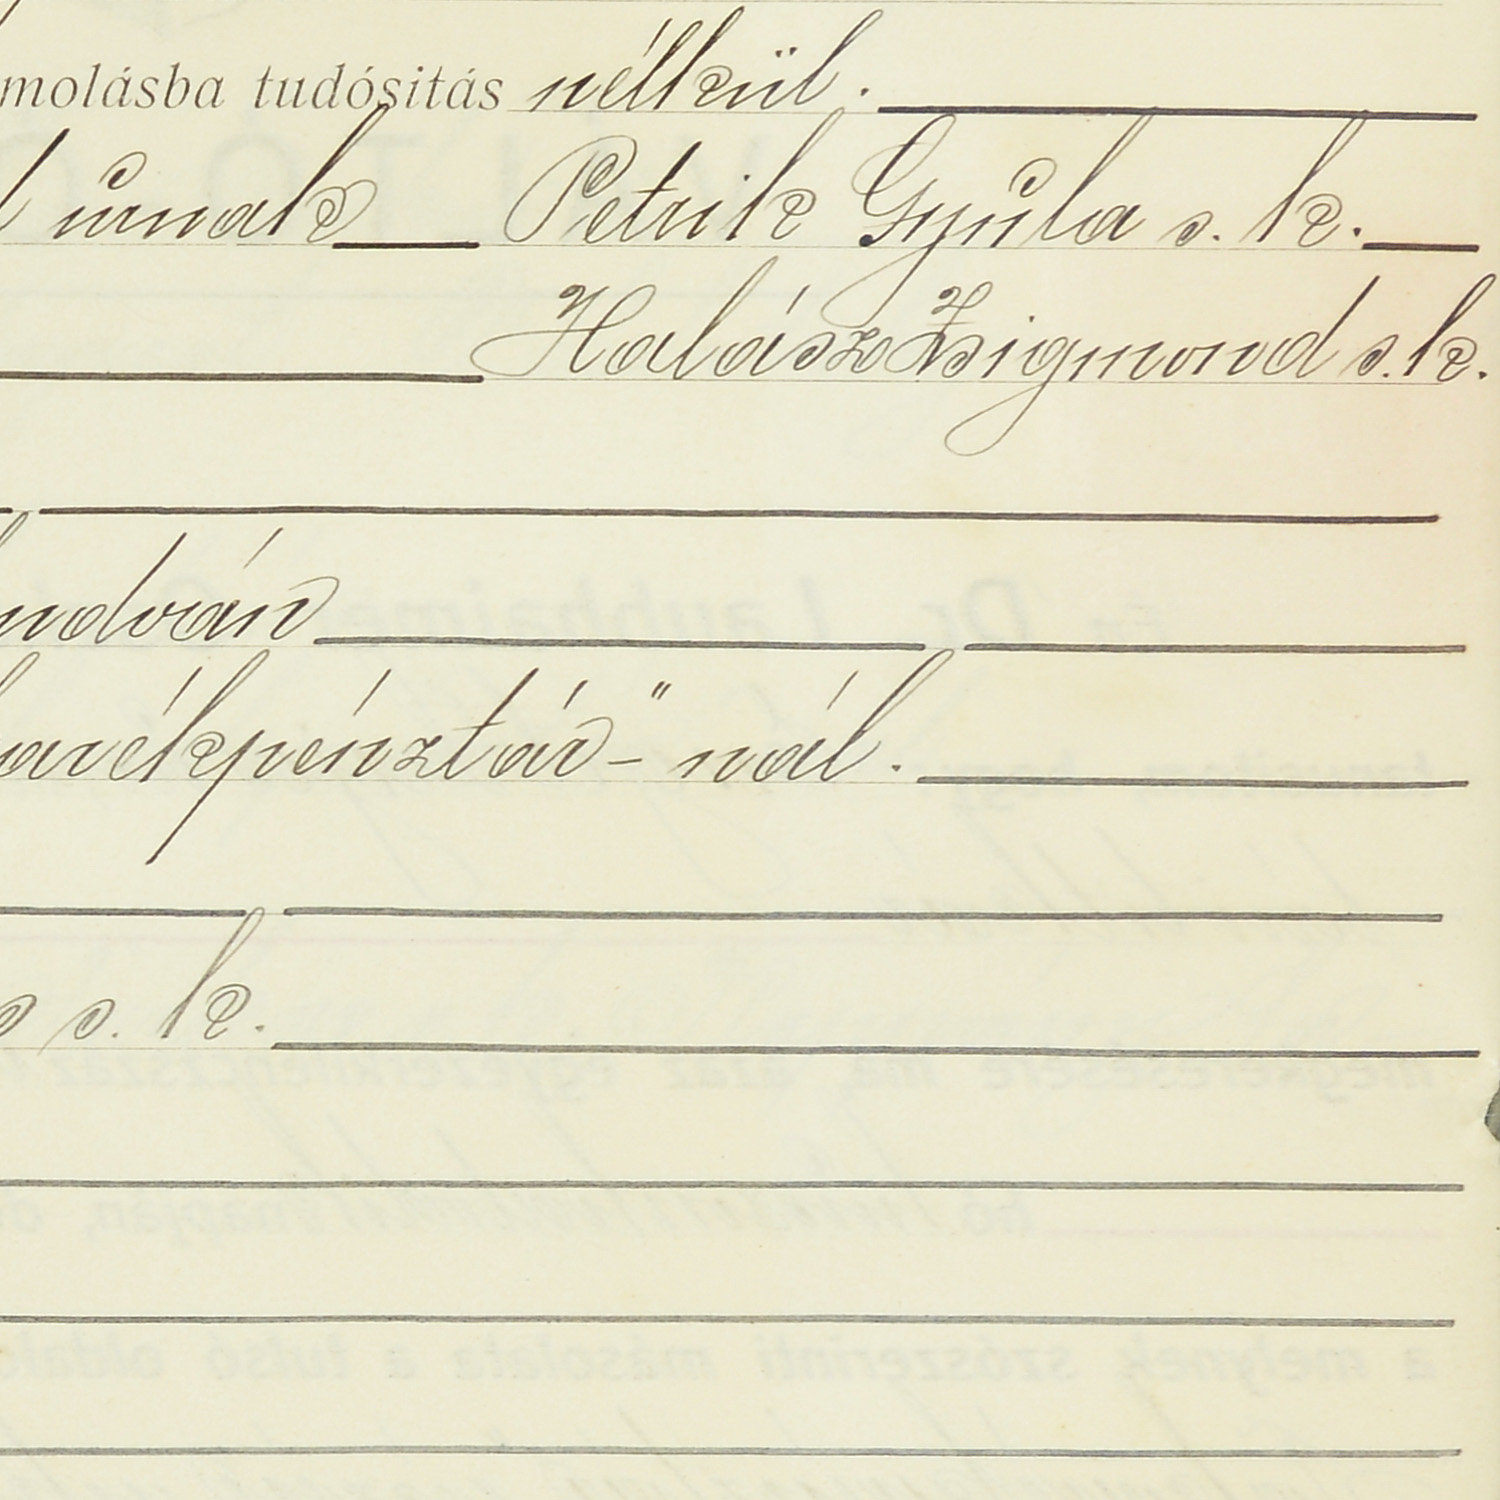 molásba tudósitás nélkül.
úrnak Petrik Gyúla s. k.
Halász Zsigmond s. k.
ndván
arékpénztár-" nál.
s. k.